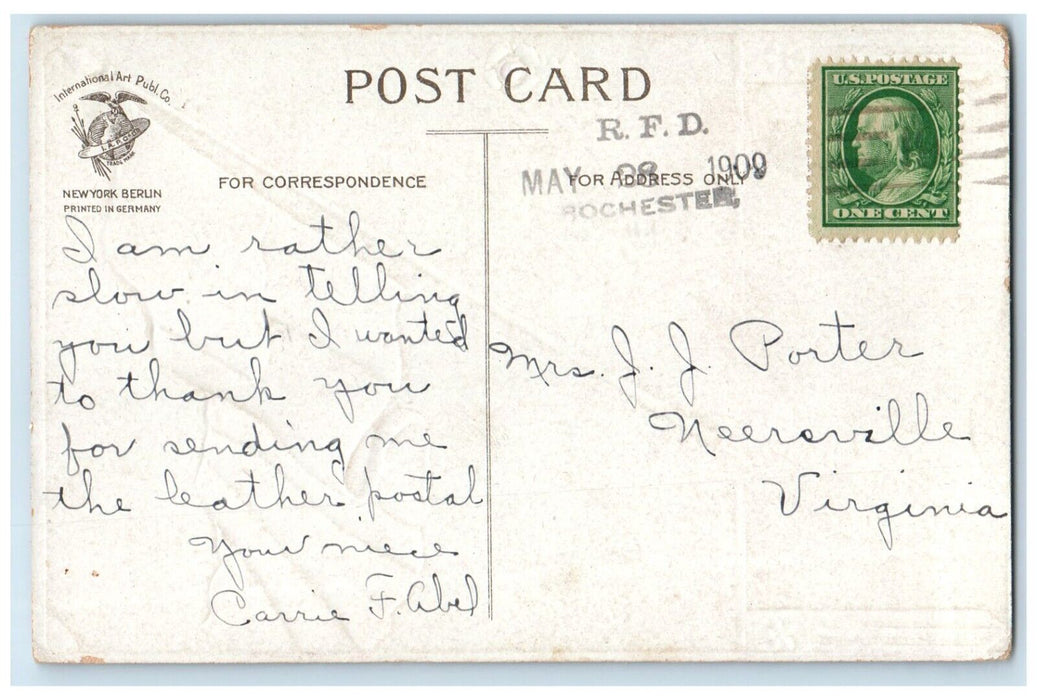 International Art Publ. Co.
TRADE MARK
NEW YORK BERLIN
PRINTED IN GERMANY
POST CARD
FOR CORRESPONDENCE
FOR ADDRESS ONLY
R. F. D.
MAY 28 1909
ROCHESTER,
U.S. POSTAGE
ONE CENT
I am rather
slow in telling
you but I wanted
to thank you
for sending me
the leather postal
Your niece
Carrie F. Abel
Mrs. J. J. Porter
Neersville
Virginia